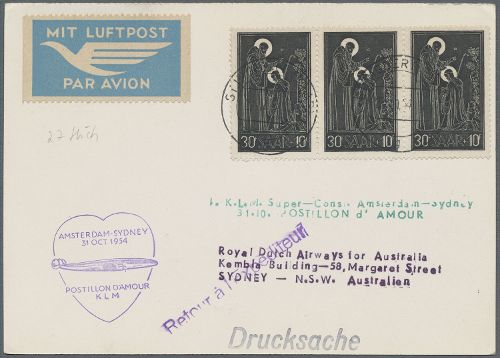 MIT LUFTPOST
PAR AVION
30 SAAR +10F
30 SAAR +10F
30 SAAR +10F
1. K.L.M. Super-Cons. Amsterdam-Sydney
31.10. POSTILLON d' AMOUR
AMSTERDAM-SYDNEY
31 OCT. 1954
POSTILLON D'AMOUR
KLM
Retour à l'expéditeur
Royal Dutch Airways for Australia
Kembla Building-58, Margaret Street
SYDNEY - N.S.W. Australien
Drucksache